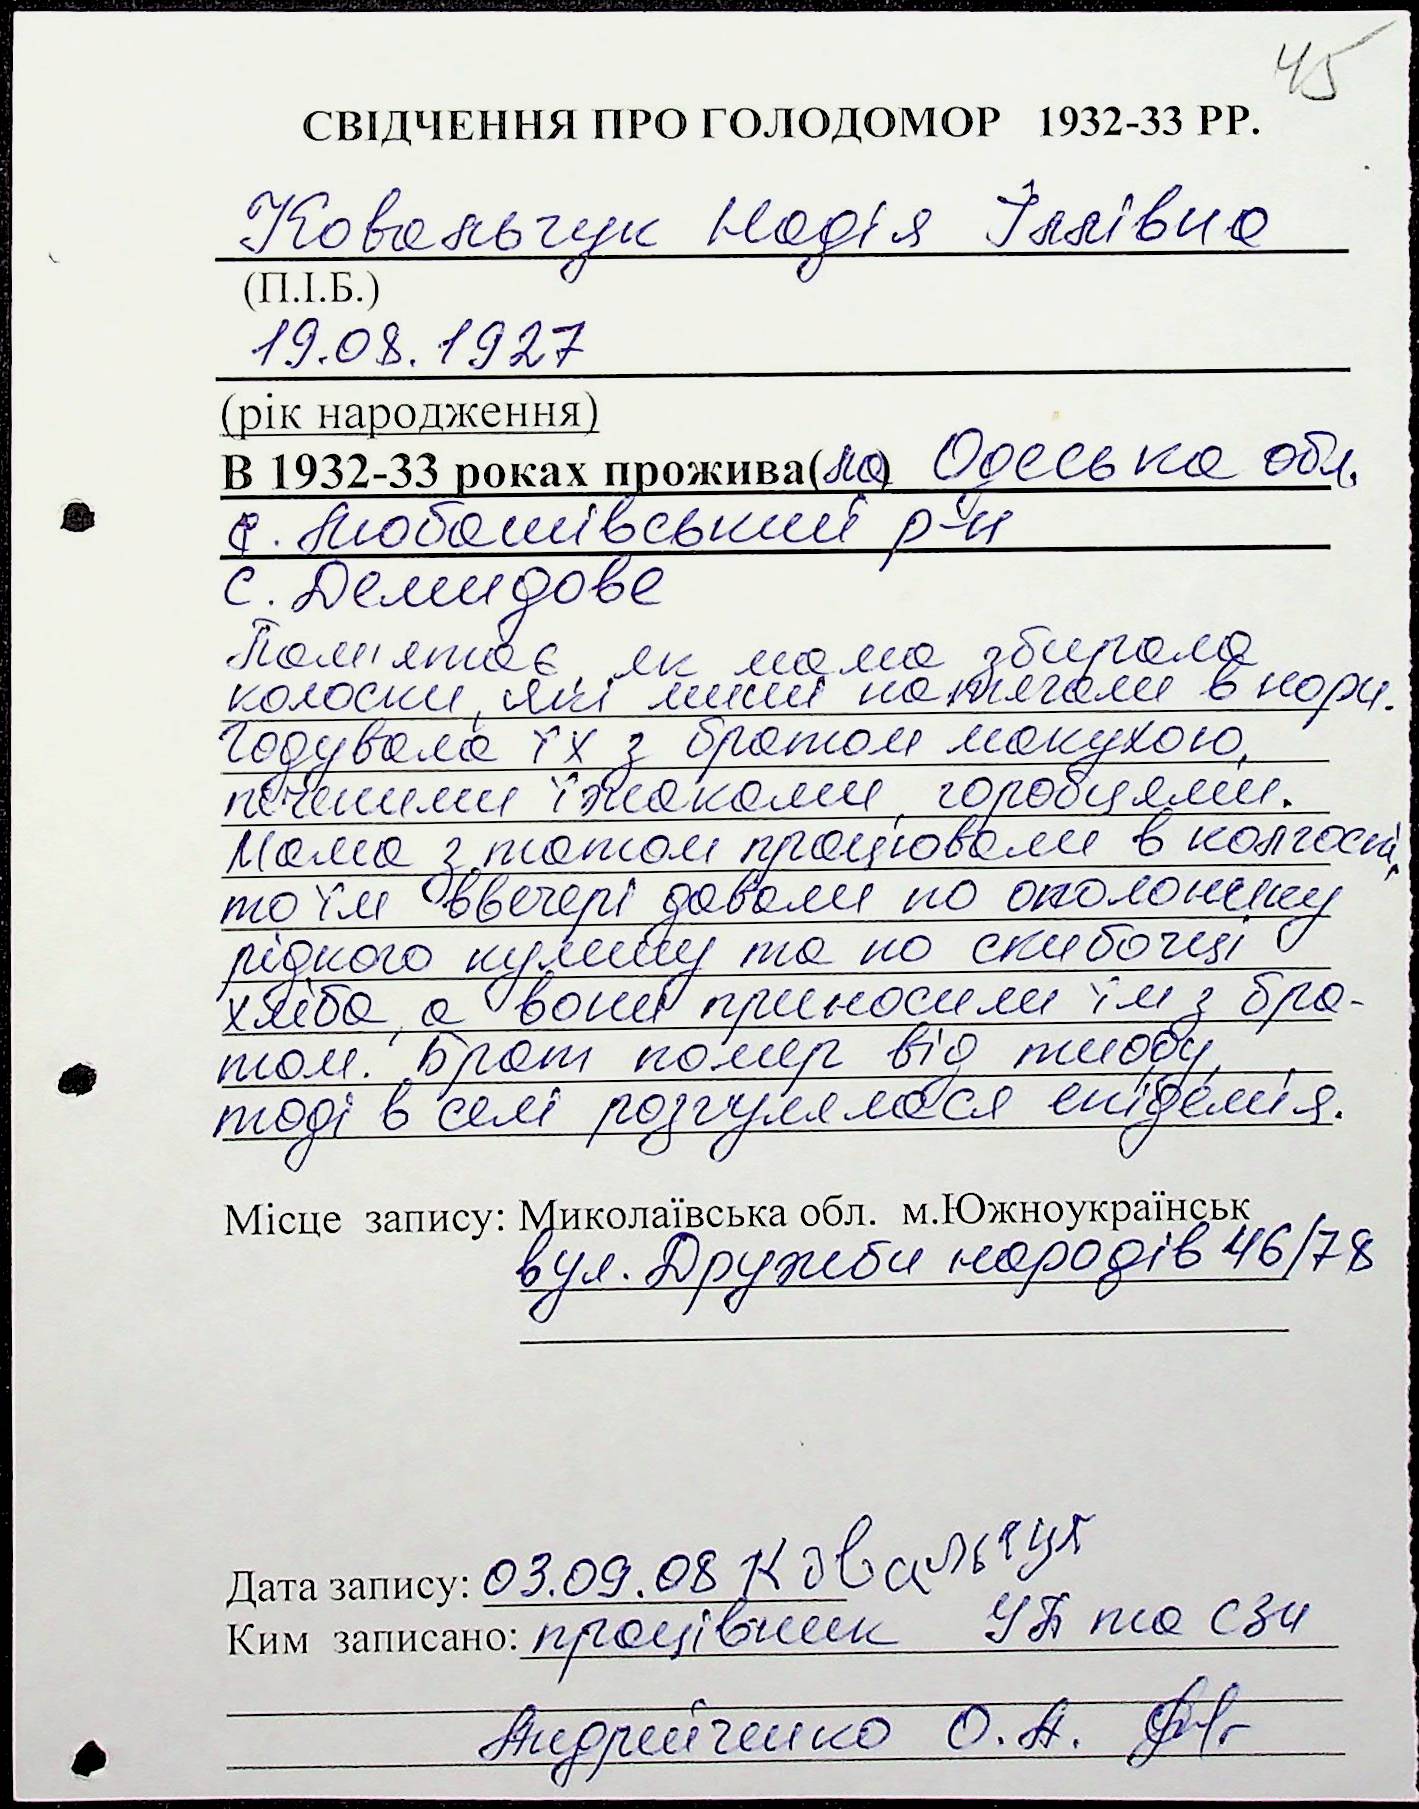 45
СВІДЧЕННЯ ПРО ГОЛОДОМОР 1932-33 РР.
Ковальчук Надія Іллівна
(П.І.Б.)
19.08.1927
(рік народження)
В 1932-33 роках прожива(ла) Одеська обл.
с. Любашівський р-н
с. Демидове
Пам'ятає, як мама збирала
колоски, які миші натягали в нори.
Годувала їх з братом макухою,
печеними їжаками, горобцями.
Мама з татом працювали в колгоспі,
то їм ввечері давали по ополонику
рідкого кулішу та по скибочці
хліба, а вони приносили їм з бра-
том. Брат помер від тифу,
тоді в селі розгулялася епідемія.
Місце запису: Миколаївська обл. м.Южноукраїнськ
вул. Дружби народів 46/78
Дата запису: 03.09.08 Ковальчук
Ким записано: працівник УП та СЗН
Андрейченко О.А.